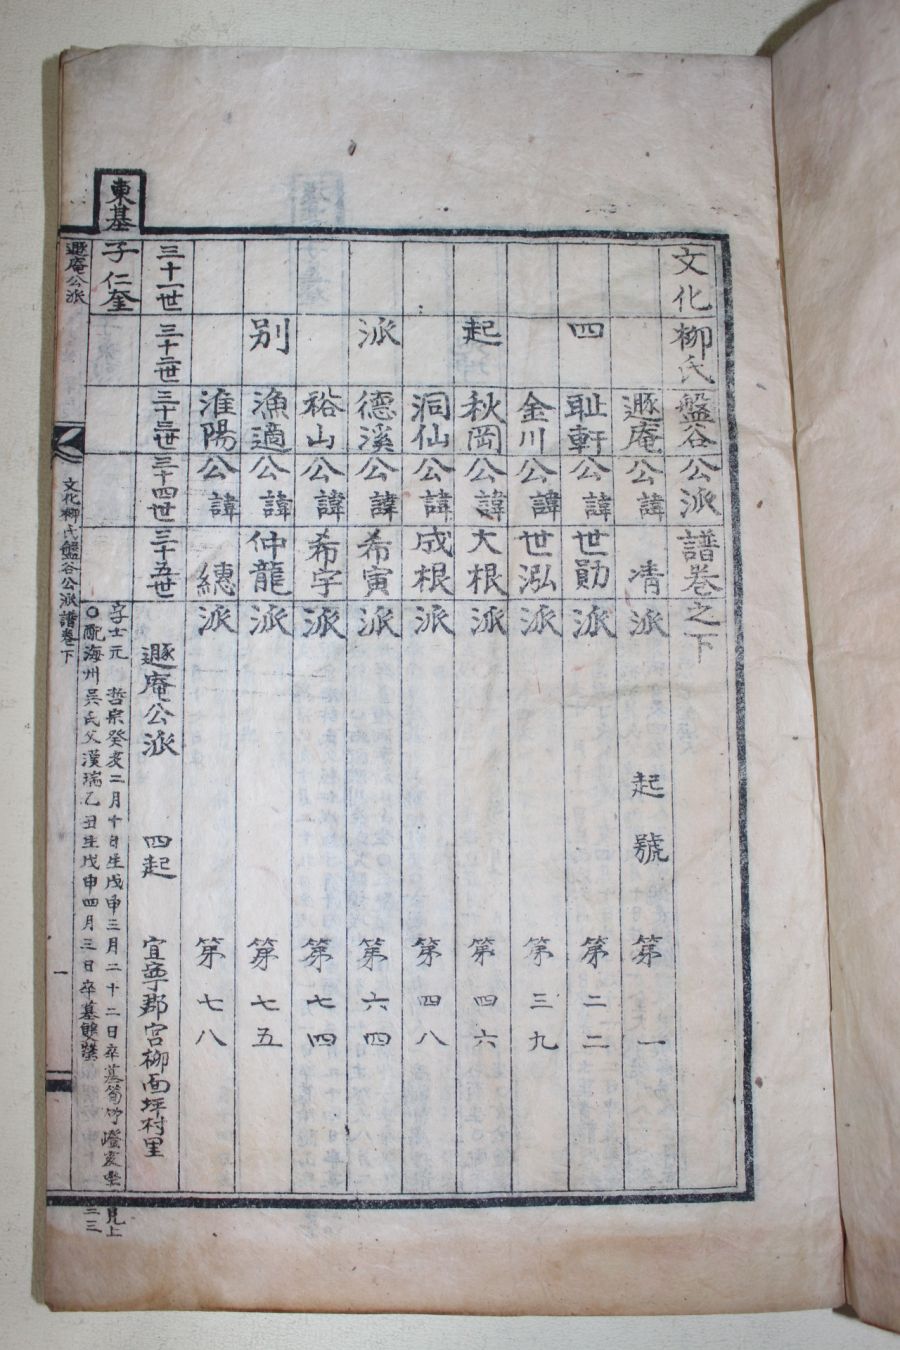 文化柳氏盤谷公派譜卷之下
遯庵公諱清派 起號 第一
四 恥軒公諱世勛派 第二二
金川公諱世泓派 第三九
起 秋岡公諱大根派 第四六
洞仙公諱成根派 第四八
派 德溪公諱希寅派 第六四
裕山公諱希字派 第七四
別 漁適公諱仲龍派 第七五
淮陽公諱繐派 第七八
三十一世 三十二世 三十三世 三十四世 三十五世 遯庵公派 四起 宜寧郡宮柳面坪村里
東基
子仁奎
字士元 哲宗癸亥二月十日生戊申三月二十二日卒墓
見上
○配海州吳氏父漢瑞乙丑生戊申四月三日卒墓雙墳
三三
遯庵公派
文化柳氏盤谷公派譜卷下
一